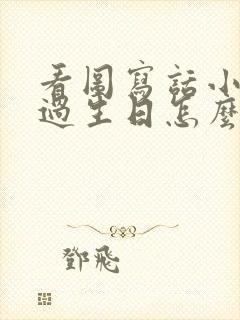 看圖寫話小
過生日怎麼
鄧飛